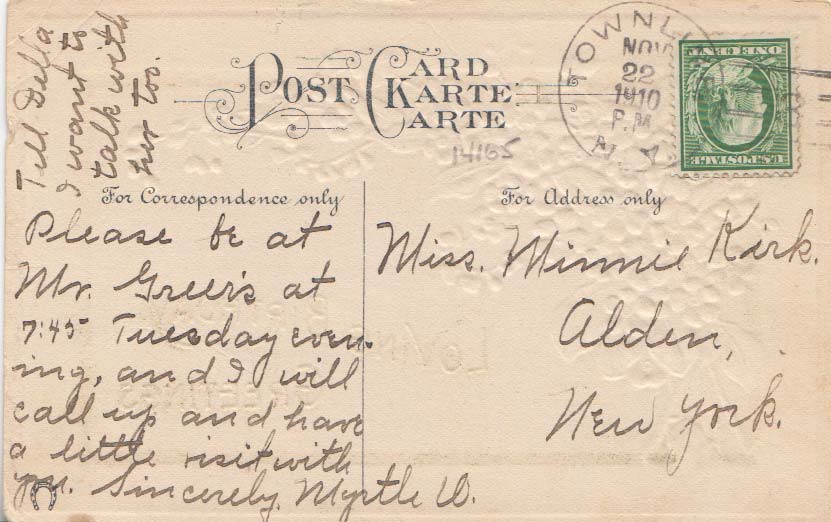 Tell Della
I want to
talk with
her too.
POST CARD
KARTE
CARTE
14165
TOWNL
NOV
22
1910
P.M.
N.Y.
ONE CENT
U.S. POSTAGE
For Correspondence only
For Address only
Please be at
Mr. Greer's at
7:45 Tuesday even-
ing, and I will
call up and have
a little visit with
you. Sincerely, Myrtle W.
Miss. Minnie Kirk.
Alden,
New York.
BIRTHDAY
LOVING
GREETINGS